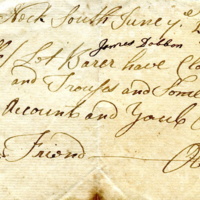 Neck South June ye
James Dobbin
Let Barer have Clo
and Trousas and Some
Account and Youl
Friend